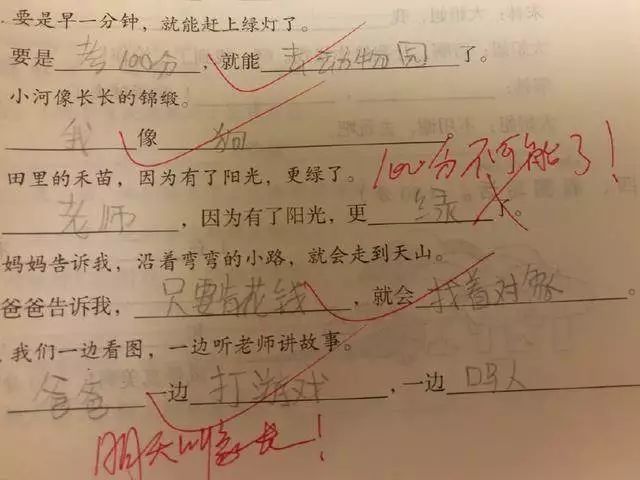 要是早一分钟，就能赶上绿灯了。
要是 考100分 ，就能 去动物园 了。
小河像长长的锦缎。
我 像 狗
100分不可能了！
田里的禾苗，因为有了阳光，更绿了。
老师 ，因为有了阳光，更 绿 了。
妈妈告诉我，沿着弯弯的小路，就会走到天山。
爸爸告诉我， 只要肯花钱 ，就会 找着对象 。
我们一边看图，一边听老师讲故事。
爸爸 一边 打游戏 ，一边 吗人
明天叫家长！